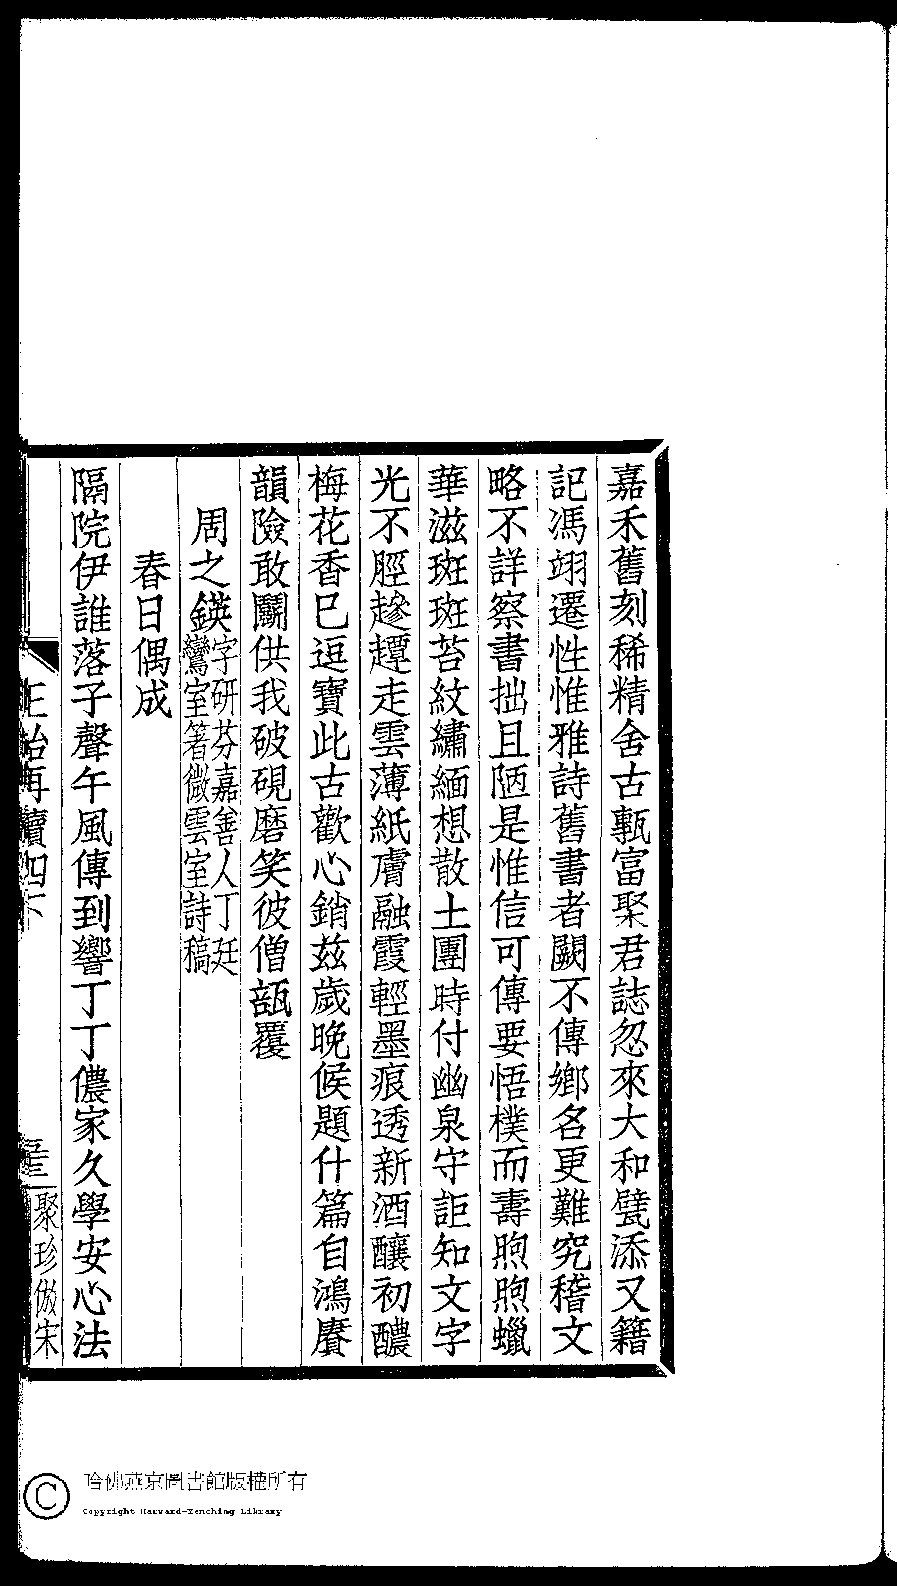 嘉禾舊刻稀精舍古甎富聚君誌忽來大和甓添又籍
記馮翊遷性惟雅詩舊書者闕不傳鄉名更難究稽文
略不詳察書拙且陋是惟信可傳要悟樸而壽煦煦蠟
華滋斑斑苔紋繡緬想散土團時付幽泉守詎知文字
光不脛趁趯走雲薄紙膚融霞輕墨痕透新酒釀初醲
梅花香巳逗寶此古歡心銷茲歲晚候題什篇自鴻賡
韻險敢鬭供我破硯磨笑彼僧瓿覆
周之鍈
字研芬嘉善人丁廷
鸞室箸微雲室詩稿
春日偶成
隔院伊誰落子聲午風傳到響丁丁儂家久學安心法
正始再續四下
聚珍倣宋
哈佛燕京圖書館版權所有
Copyright Harvard-Yenching Library